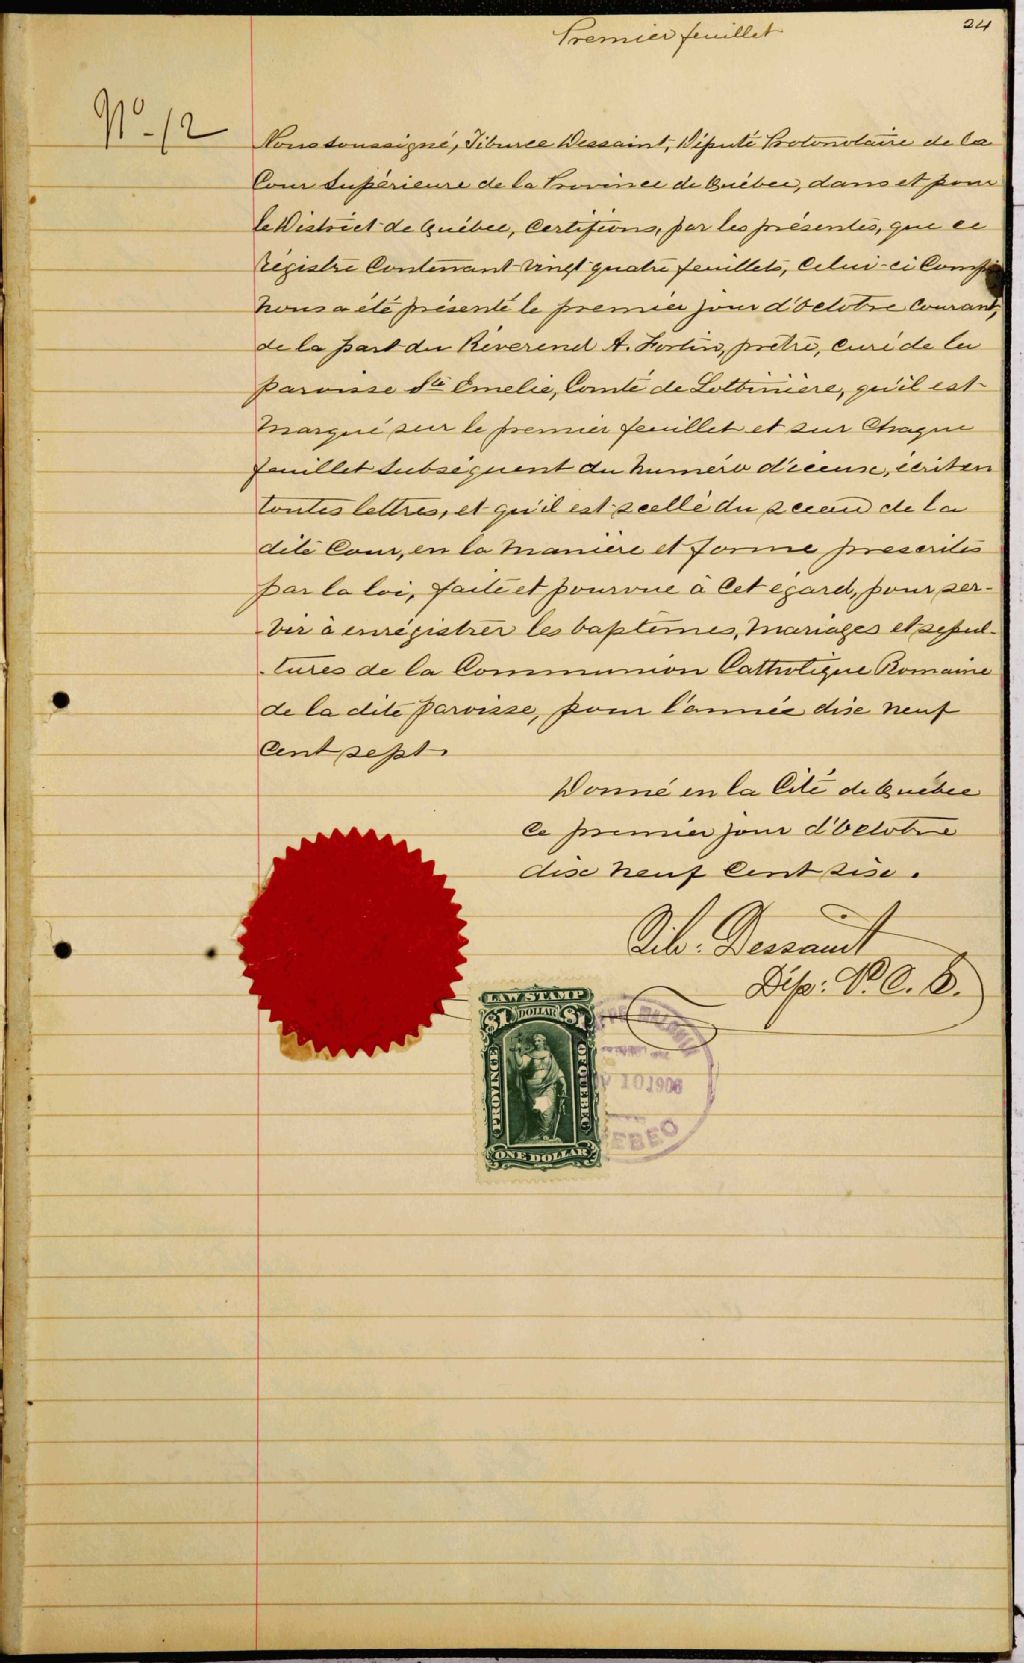 Premier feuillet
24
No-12
Nous soussigné, Tiburce Dessaint, Député Protonotaire de la
Cour Supérieure de la Province de Québec, dans et pour
le District de Québec, certifions, par les présentes, que ce
régistre contenant vingt quatre feuillets, celui-ci compris
nous a été présenté le premier jour d'Octobre courant,
de la part du Révérend A. Fortin, prêtre, curé de la
paroisse Ste Emelie, Comté de Lotbinière, qu'il est
marqué sur le premier feuillet et sur chaque
feuillet subséquent du numéro d'iceux, écrit en
toutes lettres, et qu'il est scellé du sceau de la
dite Cour, en la manière et forme prescrites
par la loi, faite et pourvue à cet égard, pour ser-
-vir à enrégistrer les baptêmes, mariages et sépul-
-tures de la Communion Catholique Romaine
de la dite paroisse, pour l'année dix neuf
cent sept.
Donné en la Cité de Québec
ce premier jour d'Octobre
dix neuf cent six.
Tib: Dessaint
Dép: P. C. S.
LAW STAMP
$1 DOLLAR $1
PROVINCE
OF QUEBEC
ONE DOLLAR
10 1906
EBEC